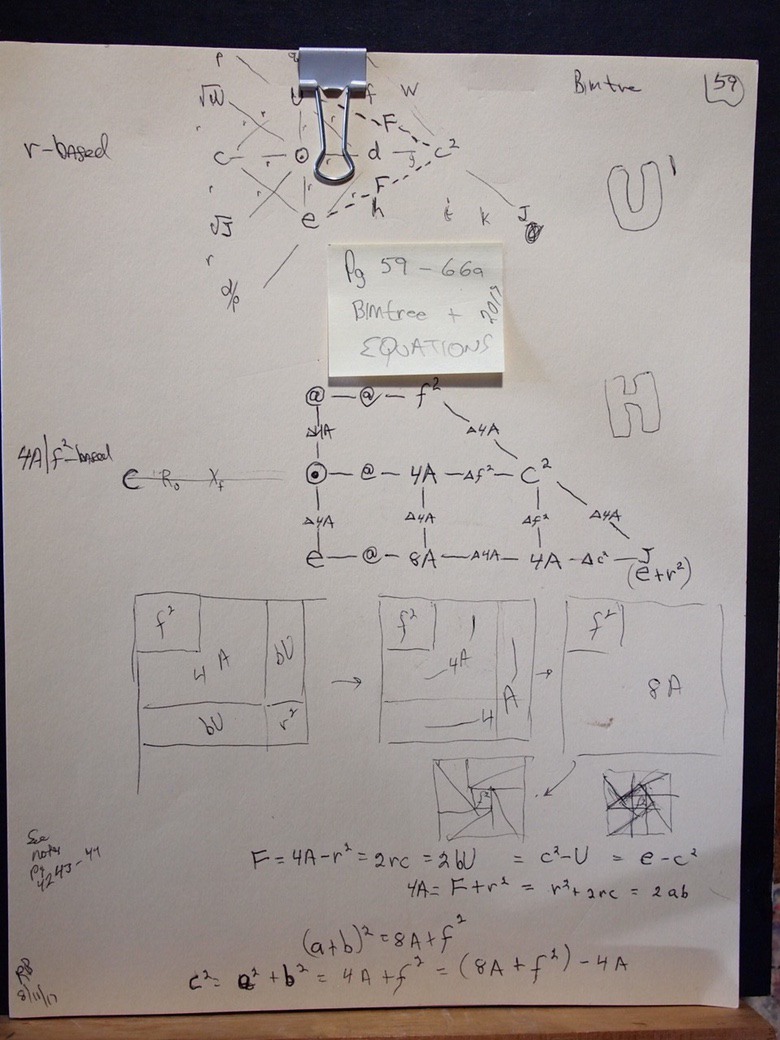 Bimtree 59
√W U f W
F
r-BASED c r d g c²
r r r F
√J e h i k J
r
d/p
U'
Pg 59 - 66a
BIMtree + 2017
EQUATIONS
@ — @ — f²
H
Δ4A Δ4A
4A|f²-based
C R₀ X_f
⊙ — @ — 4A — Δf² — C²
Δ4A Δ4A Δf² Δ4A
e — @ — 8A — Δ4A — 4A — Δc² — J
(e+r²)
f² f² f²
4A bU → 4A A → 8A
bU r² 4
See
notes
Pg
42 43-44
F = 4A-r² = 2rc = 2bU = c²-U = e-c²
4A = F+r² = r²+2rc = 2ab
(a+b)² = 8A+f²
c² = a²+b² = 4A+f² = (8A+f²) - 4A
RB
8/11/17